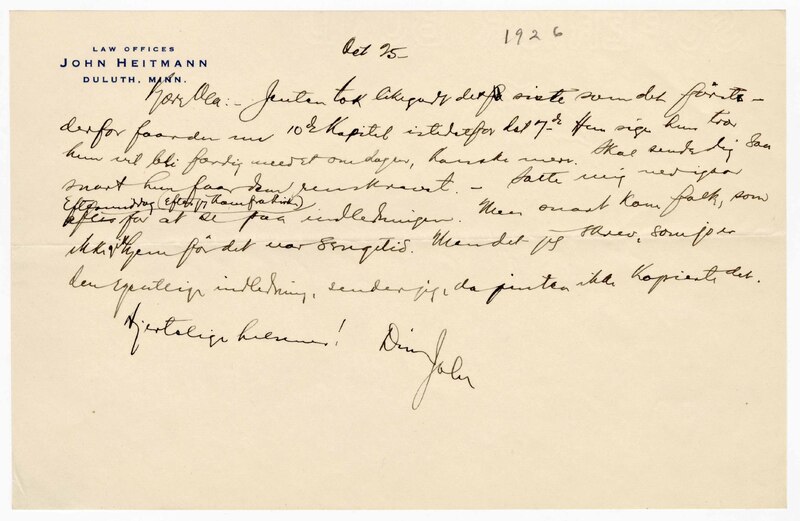 LAW OFFICES
JOHN HEITMANN
DULUTH, MINN.
1926
Oct 25-
Kjære Ola:- Jenten tok likegodt det siste som det første-
derfor faar du nu 10de Kapitel istedetfor det 7de. Hun sige hun tror
hun vil bli færdig med et om dagen, kanske mere. Skal sende dig saa
snart hun faar dem renskrevet. - Satte mig ned igaar
Eftermiddag (efter jeg kom fra kirke)
for at se paa indledningen. Men snart kom folk, som
ikke gik hjem før det var Sengetid. Men det jeg skrev, som jo er
den egentlige indledning, sender jeg, da jenten ikke kopierte det.
Hjertelige hilsener! Din John